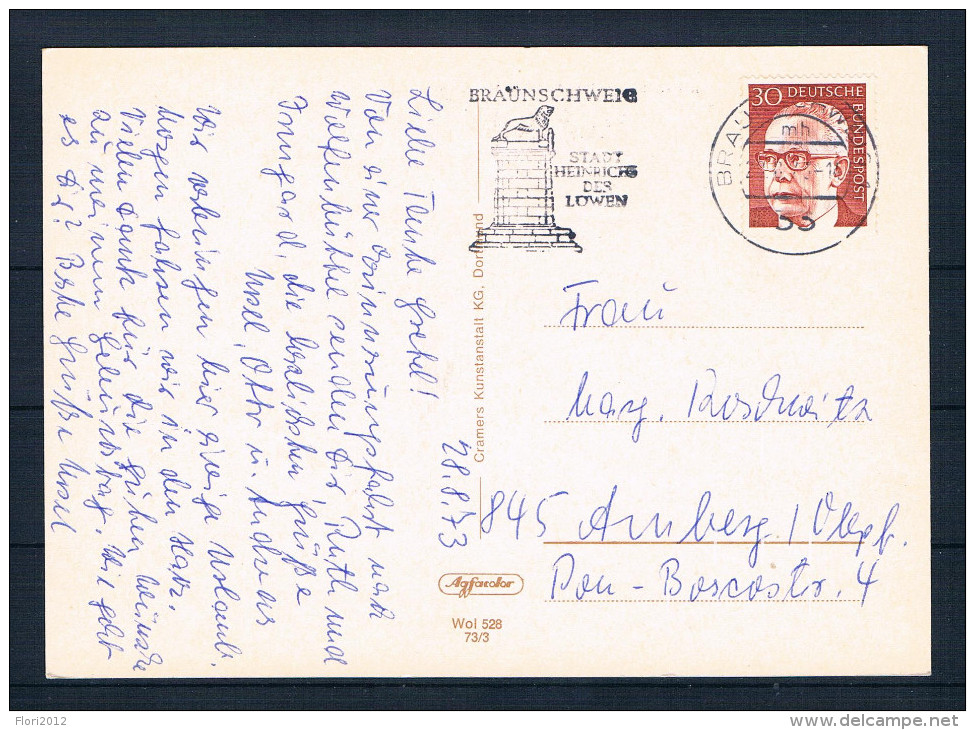 28.8.73
Liebe Tante Gretel!
Von einer Erinnerungsfahrt nach
Wolfenbüttel senden dir, Ruth und
Irmgard, die herzlichsten Grüße
Ursel, Otto u. Andreas
Wir verbringen hier einige Urlaubs.
Morgen fahren wir in den Harz.
Vielen Dank für die guten Wünsche
zu meinem Geburtstag. Wie geht
es Dir? Beste Grüße Ursel
BRAUNSCHWEIG
STADT
HEINRICHS
DES
LÖWEN
30 DEUTSCHE
BUNDESPOST
mh
Cramers Kunstanstalt KG, Dortmund
Frau
Marg. Roschwitz
845 Amberg/Obpf.
Don-Boscostr. 4
Agfacolor
Wol 528
73/3
Flori2012
www.delcampe.net